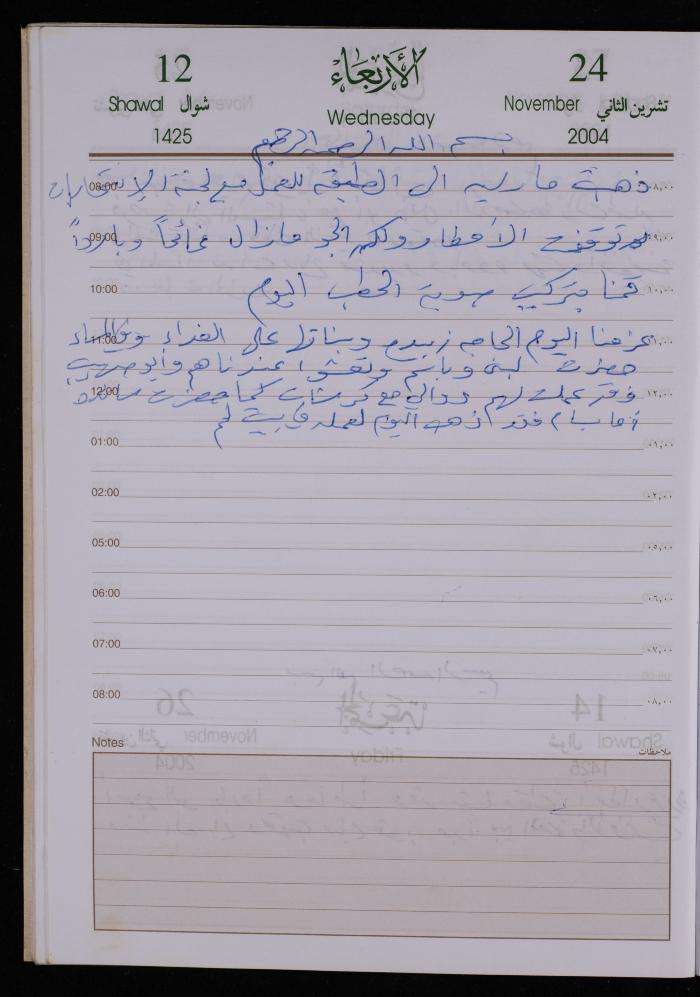 12 الأربعاء 24
Shawal شوال Wednesday November تشرين الثاني
1425 2004
بسم الله الرحمن الرحيم
08:00 ذهبت مارلين الى الطيبة للعمل مع لجنة الإنتخابات ٠٨,٠٠
09:00 توقفت الأمطار ولكن الجو مازال غائماً وبارداً ٠٩,٠٠
10:00 قمنا بتركيب صوبة الحطب اليوم ١٠,٠٠
11:00 عزمنا اليوم الحاجه زينب وبناتها على الغداء ١١,٠٠
حضرت لبنى وباسم وتعشوا عندناهم وأبو
12:00 وقد عملت لهم دوالي مع كرشات كما حضرت ١٢,٠٠
فقد ذهب اليوم لعمله في بيت لحم
01:00 ٠١,٠٠
02:00 ٠٢,٠٠
05:00 ٠٥,٠٠
06:00 ٠٦,٠٠
07:00 ٠٧,٠٠
08:00 ٠٨,٠٠
Notes ملاحظات